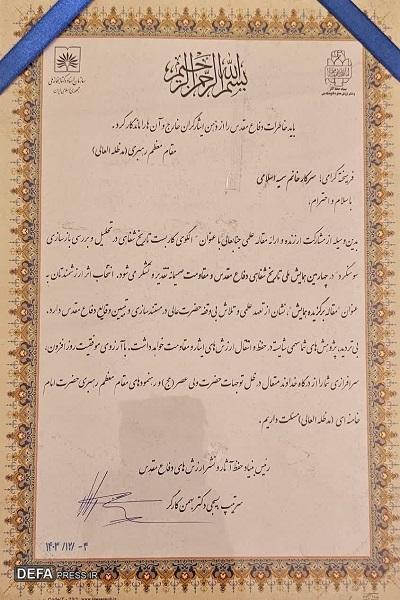 سازمان اسناد و کتابخانه ملی
جمهوری اسلامی ایران
بسم الله الرحمن الرحیم
باید خاطرات دفاع مقدس را از ذهن ایثارگران خارج و آن ها را ماندگار کرد.
مقام معظم رهبری (مدظله العالی)
فریخته گرامی؛ سرکار خانم سمیه اسلامی
با سلام و احترام؛
بدین وسیله از مشارکت ارزنده و ارائه مقاله علمی جنابعالی با عنوان "الگوی کاربست تاریخ شفاهی در تحلیل و بررسی بازسازی
سوسنگرد" در چهارمین همایش ملی تاریخ شفاهی دفاع مقدس و مقاومت صمیمانه تقدیر و تشکر می شود. انتخاب اثر ارزشمندتان به
عنوان "مقاله برگزیده همایش"، نشان از تعهد علمی و تلاش بی وقفه حضرت عالی در مستندسازی و تبیین وقایع دفاع مقدس دارد.
بی تردید، پژوهش های شما سهمی شایسته در حفظ و انتقال ارزش های ایثار و مقاومت خواهد داشت. با آرزوی موفقیت روزافزون،
سرافرازی شما را از درگاه خداوند متعال در ظل توجهات حضرت ولی عصر (عج) و رهنمودهای مقام معظم رهبری حضرت امام
خامنه ای (مدظله العالی) مسئلت داریم.
رئیس بنیاد حفظ آثار و نشر ارزش های دفاع مقدس
سرتیپ بسیجی دکتر بهمن کارگر
۱۴۰۳ /۱۲/ ۰۴
DEFAPRESS.IR